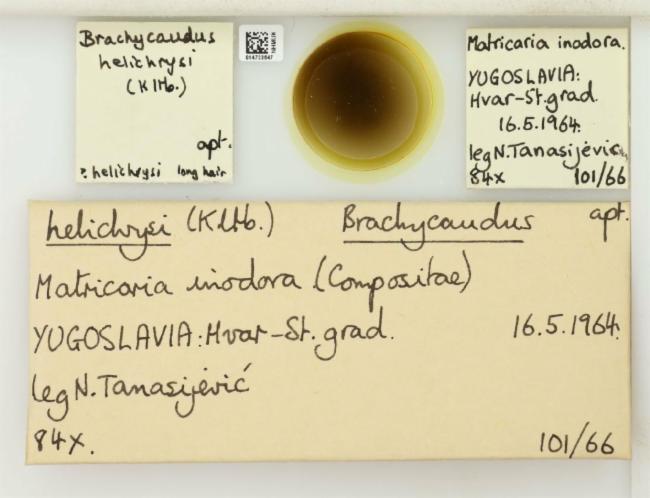 Brachycaudus
helichrysi
(Kltb.)
apt.
? helichrysi long hair
Matricaria inodora.
YUGOSLAVIA:
Hvar-St.grad.
16.5.1964.
leg N. Tanasijević
84x 101/66
helichrysi (Kltb.) Brachycaudus apt.
Matricaria inodora (Compositae)
YUGOSLAVIA: Hvar-St. grad. 16.5.1964.
leg N. Tanasijević
84x. 101/66